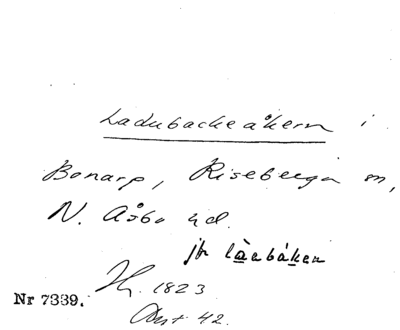 Ladubackeåkern i
Bonarp, Riseberga sn,
N. Åsbo hd.
jfr låebåken
H. 1823
Nr 7339.
Anst 42.